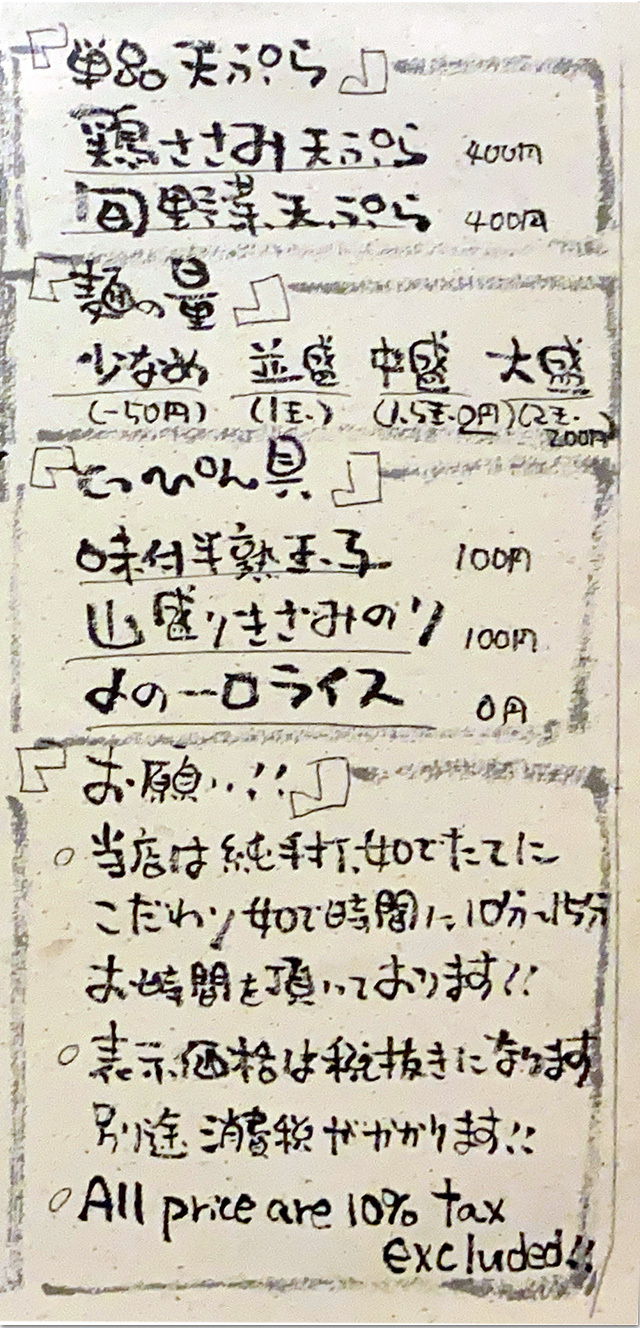 『単品天ぷら』
鶏ささみ天ぷら 400円
旬野菜天ぷら 400円
『麺の量』
少なめ 並盛 中盛 大盛
(-50円) (1玉) (1.5玉・0円) (2玉・200円)
『とっぴん具』
味付半熟玉子 100円
山盛りきざみのり 100円
〆の一口ライス 0円
『お願い!!』
○当店は純手打、茹でたてに
こだわり茹で時間に10分~15分
お時間を頂いております!!
○表示価格は税抜きになります
別途消費税がかかります!!
○All price are 10% tax
excluded!!